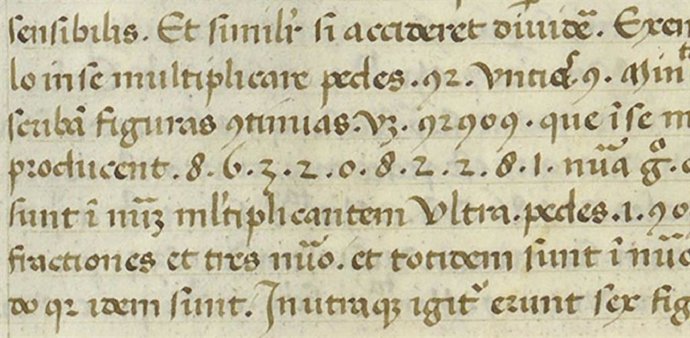 sensibilis. Et similr̃ si accideret diuidē. Exen
lo in se multiplicare pedes .92. vntias 9. Min
scribā figuras 9tinuas. vꝫ. 92909. que ī se m
producent .8.6.3.2.0.8.2.2.8.1. nūa g̊.
sunt ī nūꝫ ml̃tiplicantem Vltra. pedes .1. 90
fractiones et tres nūo. et totidem sunt ī nūe
do qr idem sunt. In utraqꝫ igit᷑ erunt sex fig